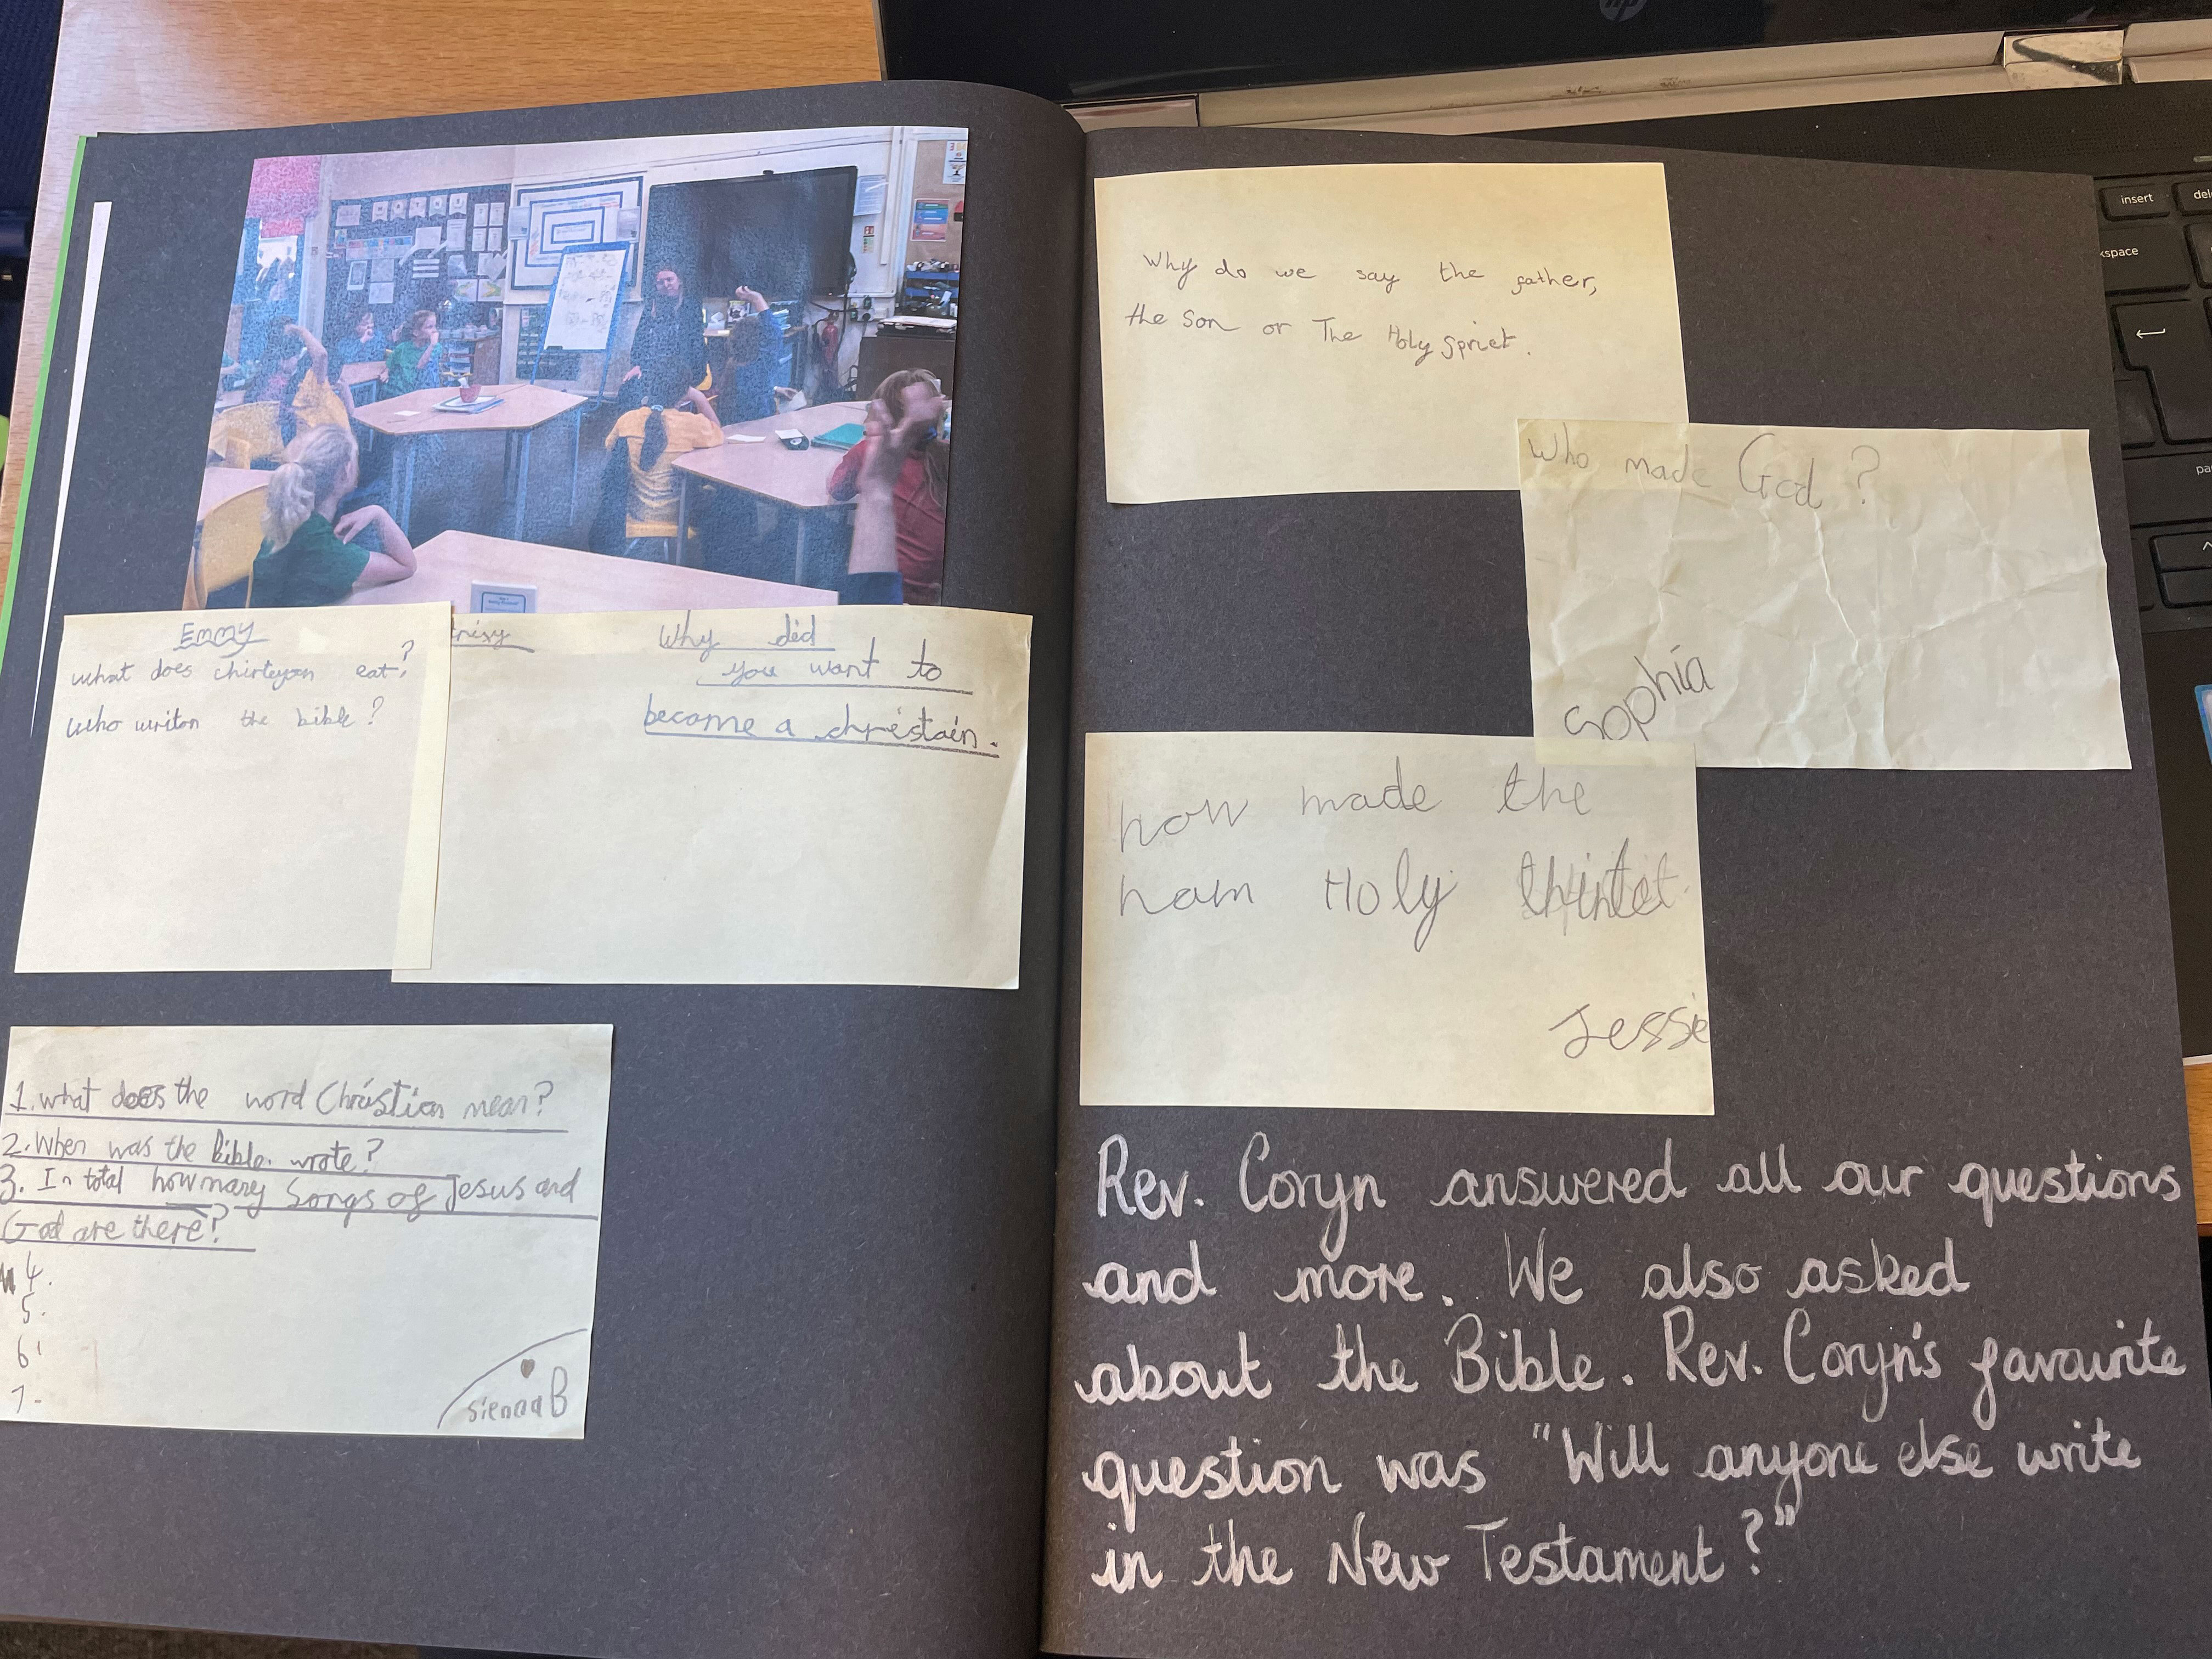 Emmy
what does chirteyan eat?
who writon the bible?
Why did
you want to
become a christain.
1. what does the word Christian mean?
2. When was the bible. wrote?
3. In total how many Songs of Jesus and
God are there?
4.
5.
6.
7.
sienna B
Why do we say the father,
the Son or The Holy Spriet.
who made God?
Sophia
how made the
nam Holy
Jessie
Rev. Coryn answered all our questions
and more. We also asked
about the Bible. Rev. Coryn's favourite
question was "Will anyone else write
in the New Testament?"
hp
insert